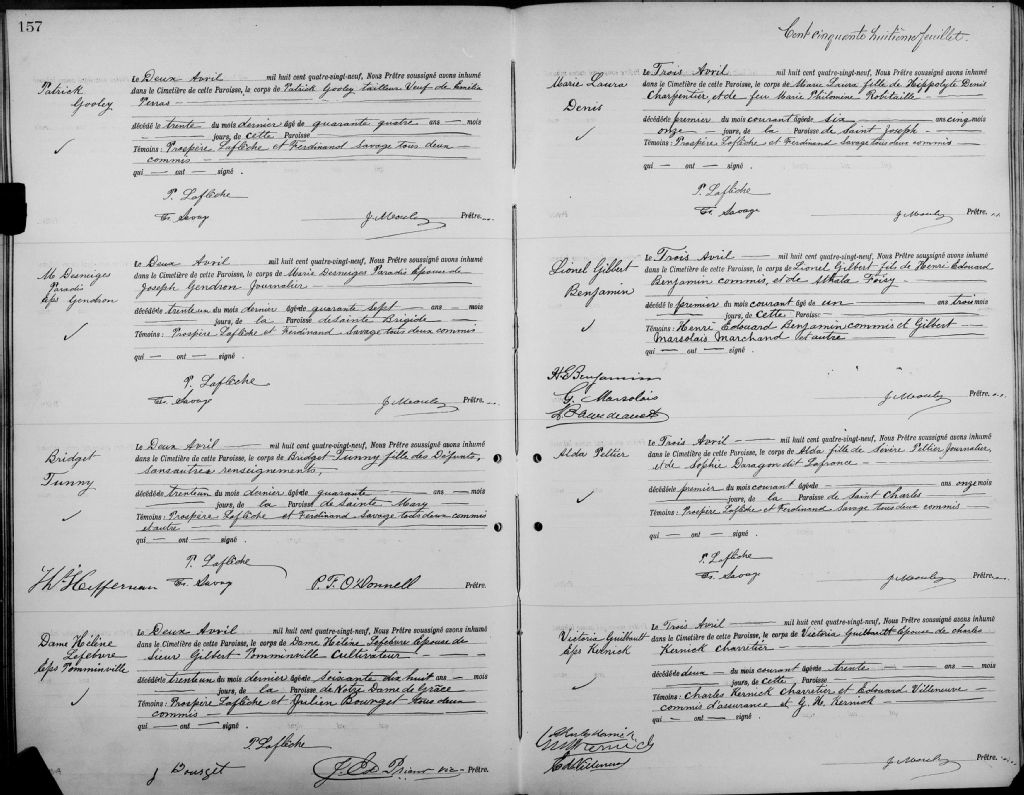 157
Patrick
Gooley
Le Deux Avril — mil huit cent quatre-vingt-neuf, Nous Prêtre soussigné avons inhumé
dans le Cimetière de cette Paroisse, le corps de Patrick Gooley tailleur Veuf de
Perras
décédé le trente du mois dernier âgé de quarante quatre ans — mois
— jours, de cette Paroisse
Témoins : Prospère Laflèche et Ferdinand Savage tous deux
commis
qui — ont — signé .
P. Laflèche
Fr. Savage
Prêtre.
M Desneiges
Paradis
Eps Gendron
Le Deux Avril — mil huit cent quatre-vingt-neuf, Nous Prêtre soussigné avons inhumé
dans le Cimetière de cette Paroisse, le corps de Marie Desneiges Paradis Epouse de
Joseph Gendron Journalier
décédée trenteun du mois dernier âgée de quarante Sept — ans — mois
— jours, de la Paroisse de Sainte Brigide
Témoins : Prospère Laflèche et Ferdinand Savage tous deux commis
qui — ont — signé .
P. Laflèche
Fr. Savage
Prêtre.
Bridget
Tunny
Le Deux Avril — mil huit cent quatre-vingt-neuf, Nous Prêtre soussigné avons inhumé
dans le Cimetière de cette Paroisse, le corps de Bridget Tunny fille des Défunts,
sans autres renseignements,
décédée trenteun du mois dernier âgée de quarante — ans — mois
— jours, de la Paroisse de Sainte Mary
Témoins : Prospère Laflèche et Ferdinand Savage tous deux commis
et autre
qui — ont — signé .
P. Laflèche
Heffernan Fr. Savage P. F. O'Donnell Prêtre.
Dame Hélène
Lefebvre
Eps Pomminville
Le Deux Avril — mil huit cent quatre-vingt-neuf, Nous Prêtre soussigné avons inhumé
dans le Cimetière de cette Paroisse, le corps de Dame Hélène Lefebvre Epouse de
Sieur Gilbert Pomminville Cultivateur
décédée trenteun du mois dernier âgée de Soixante dix huit ans — mois
— jours, de la Paroisse de Notre Dame de Grâce
Témoins : Prospère Laflèche et Julien Bourget tous deux
commis
qui — ont — signé .
P. Laflèche
J Bourget Prêtre.
Cent cinquante huitième feuillet.
Marie Laura
Denis
Le Trois Avril — mil huit cent quatre-vingt-neuf, Nous Prêtre soussigné avons inhumé
dans le Cimetière de cette Paroisse, le corps de Marie Laura fille de Hippolyte Denis
Charpentier, et de feu Marie Philomine Robitaille
décédée premier du mois courant âgée de six — ans cinq mois
onze — jours, de la Paroisse de Saint Joseph
Témoins : Prospère Laflèche et Ferdinand Savage tous deux commis
qui — ont — signé .
P. Laflèche
Fr. Savage
Prêtre.
Lionel Gilbert
Benjamin
Le Trois Avril — mil huit cent quatre-vingt-neuf, Nous Prêtre soussigné avons inhumé
dans le Cimetière de cette Paroisse, le corps de Lionel Gilbert fils de Henri Edouard
Benjamin commis, et de Athala Foisy
décédé le premier du mois courant âgé de un — ans trois mois
— jours, de cette Paroisse
Témoins : Henri Edouard Benjamin commis et Gilbert
Marsolais Marchand et autre
qui — ont — signé .
H E Benjamin
G. Marsolais
Prêtre.
Alda Peltier
Le Trois Avril — mil huit cent quatre-vingt-neuf, Nous Prêtre soussigné avons inhumé
dans le Cimetière de cette Paroisse, le corps de Alda fille de Sévère Peltier Journalier,
et de Sophie Daragon dit Lafrance
décédée premier du mois courant âgée de — ans onze mois
— jours, de la Paroisse de Saint Charles
Témoins : Prospère Laflèche et Ferdinand Savage tous deux commis
qui — ont — signé .
P. Laflèche
Fr. Savage
Prêtre.
Victoria Guilbault
Eps Kernick
Le Trois Avril — mil huit cent quatre-vingt-neuf, Nous Prêtre soussigné avons inhumé
dans le Cimetière de cette Paroisse, le corps de Victoria Guilbault Epouse de Charles
Kernick charretier
décédée deux — du mois courant âgée de trente — ans — mois
— jours, de cette Paroisse
Témoins : Charles Kernick charretier et Edouard Villeneuve
commis d'assurance et G. H. Kernick
qui — ont — signé .
Charles Kernick
Kernick
Villeneuve
Prêtre.